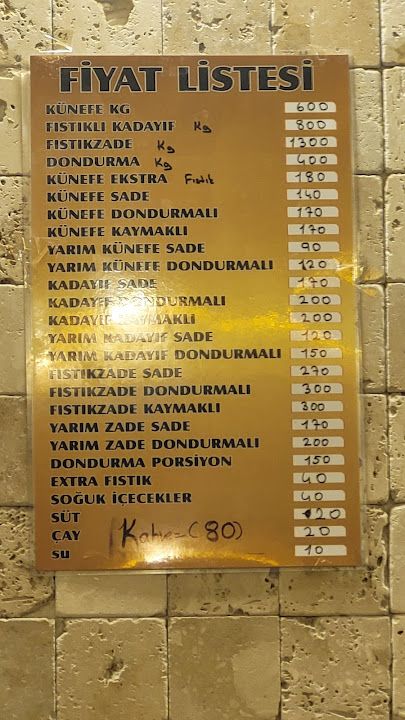 FİYAT LİSTESİ
KÜNEFE KG 600
FISTIKLI KADAYIF Kg 800
FISTIKZADE Kg 1300
DONDURMA Kg 400
KÜNEFE EKSTRA Fıstık 180
KÜNEFE SADE 140
KÜNEFE DONDURMALI 170
KÜNEFE KAYMAKLI 170
YARIM KÜNEFE SADE 90
YARIM KÜNEFE DONDURMALI 120
KADAYIF SADE 170
KADAYIF DONDURMALI 200
KADAYIF KAYMAKLI 200
YARIM KADAYIF SADE 120
YARIM KADAYIF DONDURMALI 150
FISTIKZADE SADE 270
FISTIKZADE DONDURMALI 300
FISTIKZADE KAYMAKLI 300
YARIM ZADE SADE 170
YARIM ZADE DONDURMALI 200
DONDURMA PORSİYON 150
EXTRA FISTIK 40
SOĞUK İÇECEKLER 40
SÜT 20
ÇAY Kahve=(80) 20
su 10